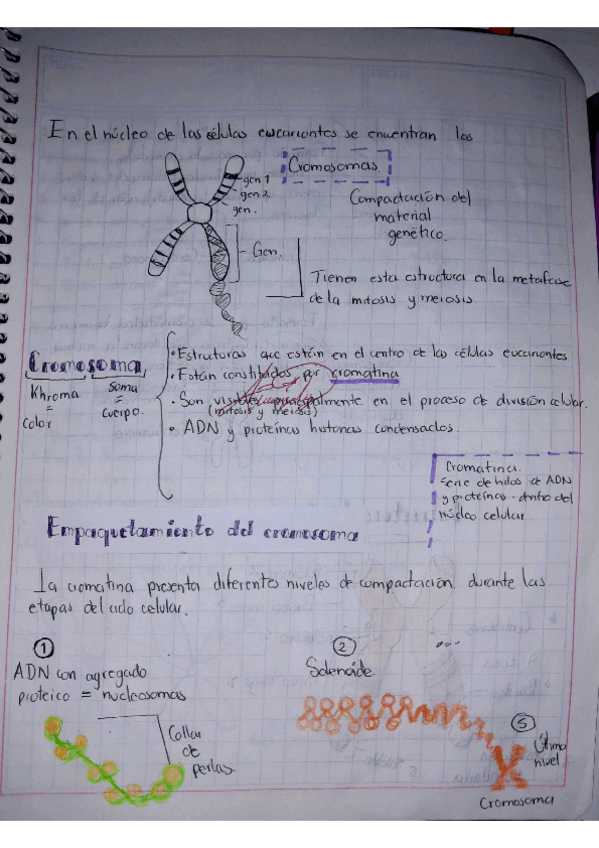 En el núcleo de las células eucariontes se encuentran los
Cromosomas
gen 1
gen 2
gen.
Compactación del
material
genético.
Gen.
Tienen esta estructura en la metafase
de la mitosis y meiosis
Cromosoma
Khroma
=
color
Soma
=
Cuerpo.
• Estructuras que están en el centro de las células eucariontes
• Están constituidos por cromatina
• Son visibles principalmente en el proceso de división celular.
(mitosis y meiosis)
• ADN y proteínas histonas condensados.
Cromatina.
Serie de hilos de ADN
y proteínas dentro del
núcleo celular
Empaquetamiento del cromosoma
La cromatina presenta diferentes niveles de compactación durante las
etapas del ciclo celular.
1
ADN con agregado
proteico = nucleosomas
Collar
de
perlas.
2
Solenoide
...
5
Último
nivel.
Cromosoma